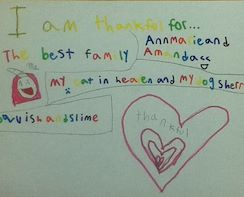 I am thankful for...
The best family
Annmarie and
Amanda
Me
my cat in heaven and my dog Sherr
and slime
thankful